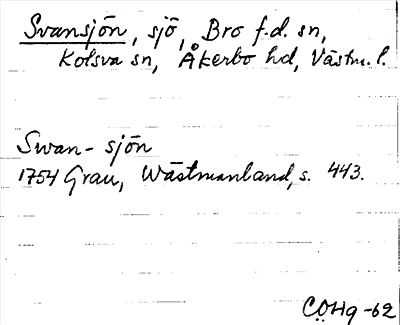 Svansjön, sjö, Bro f.d. sn,
Kolsva sn, Åkerbo hd, Västm. l.
Swan-sjön
1754 Grau, Wästmanland, s. 443.
CÖHg -62